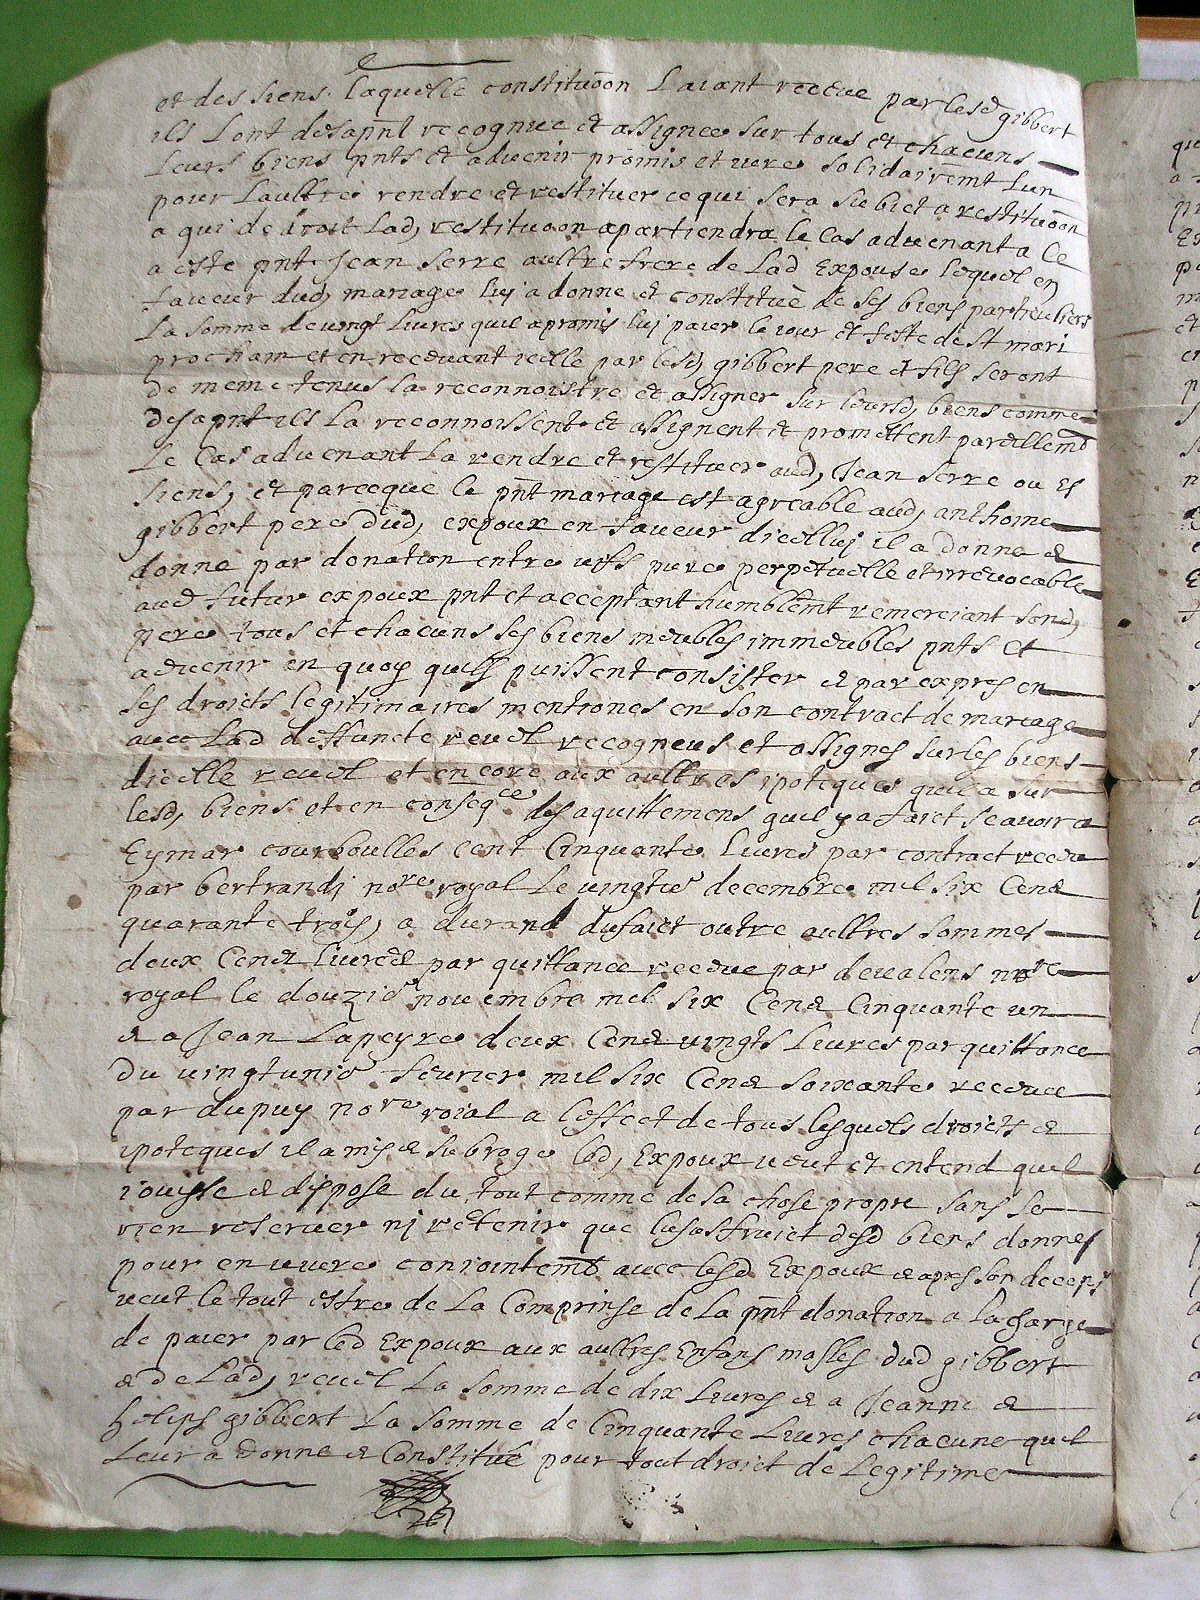 et des siens laquelle constituôon L'aiant receue par lesd gibbert
ils L'ont desapñt recogneue et assignee sur tous et chacuns
Leurs biens pñts et advenir promis et vere solidairemt L'un
pour L'aultre rendre et restituer ce qui sera subiet a restituôon
a qui de droit Lad, restituoon apartiendra le Cas advenant a Ce
a este pñt Jean Serre aultre frere de Lad Expouse lequel en
faveur dud, mariage luj a donne et constitué de ses biens particuliers
La somme de vingt Livres quil a promis luj paier le iour et feste de St mari
prochain et en recevant icelle par lesd, gibbert pere et fils seront
de meme tenus la reconnoistre et assigner sur leursd, biens comme
desapñt ils La reconnoissent et assignent et promettent pareillemt
Le Cas advenant La rendre et restituer aud, Jean Serre ou es
siens, et parceque le pñt mariage est agreable aud, anthoine
gibbert pere dud, expoux en faveur dicelluj il a donne et
donne par donation entre vifs pure perpetuelle et irrevocable
aud futur expoux pñt et acceptant humblemt remerciant sond,
pere tous et chacuns ses biens meubles immeubles pñts et
advenir en quoy quils puissent consister et par expres en
ses droicts legitimaires mentiones en son contract de mariage
avec Lad deffuncte revel recogneus et assignes sur les biens
dicelle revel et encore aux aultres ipoteques quil a sur
lesd, biens et en conseqce des aquittemens quil y a faict scavoir a
Eymar courboulles cent Cinquante Livres par contract receu
par bertrandj nore royal Le vingtie decembre mil six Cens
quarante trois, a durand dufaict outre aultres sommes
deux Cens livres par quittance receue par devalens nore
royal le douzie novembre mil six Cens Cinquante un
et a Jean Lapeyre deux Cens vingts Livres par quittance
du vingtunie fevrier mil six Cens soixante receue
par dupuy nore roial a l'effect de tous lesquels droicts et
ipoteques il a mis et subroge led, Expoux veut et entend quil
iouisse et dispose du tout comme de sa chose propre sans se
rien reserver nj retenir que lusufruict desd biens donnes
pour en vivre coniointemt avec lesd Expoux et apres son deces
veut le tout estre de La Comprinse de la pñt donation a la charge
de paier par led Expoux aux aultres Enfans masles dud gibbert
et de Lad, revel La somme de dix Livres et a Jeanne et
helips gibbert La somme de Cinquante Livres chacune quil
Leur a donne et Constitué pour tout droict de Legitime